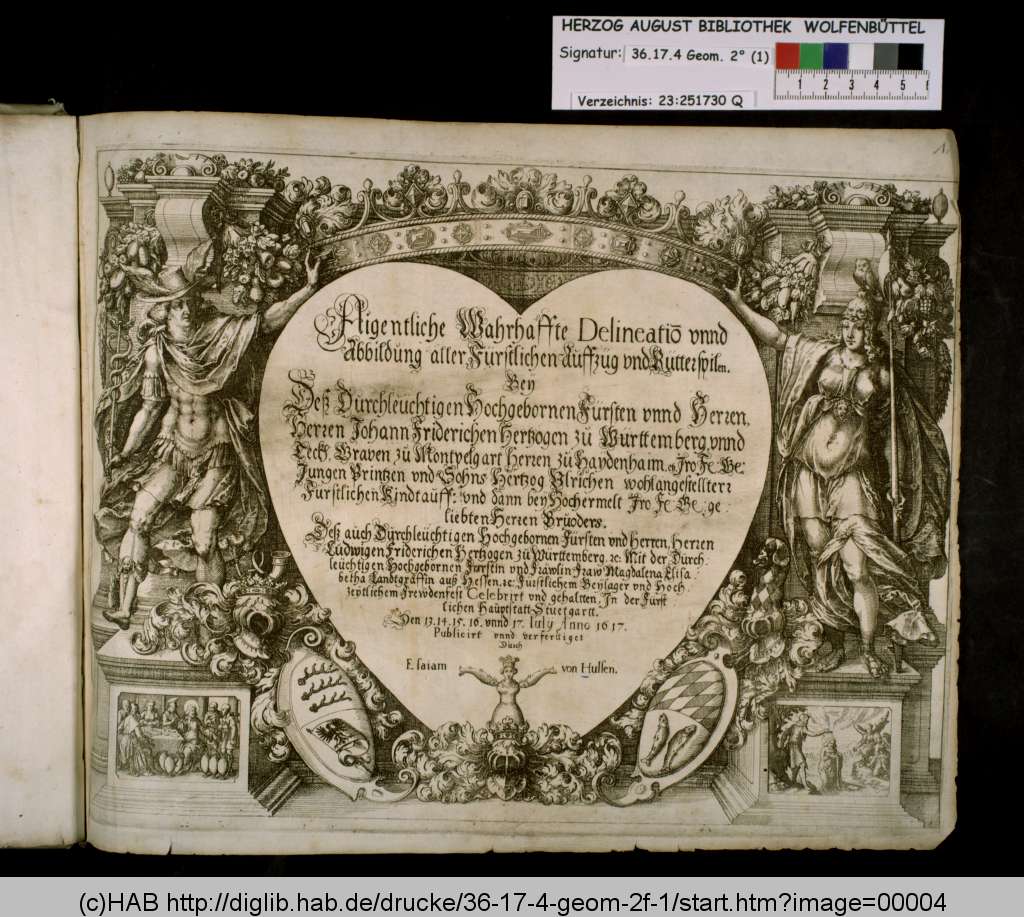 HERZOG AUGUST BIBLIOTHEK WOLFENBÜTTEL
Signatur: 36.17.4 Geom. 2° (1)
1 2 3 4 5 6
Verzeichnis: 23:251730 Q
1.
Aigentliche Wahrhaffte Delineatiō vnnd
Abbildung aller Fürstlichen Auffzug vnd Rütterspilen.
Bey
Deß Durchleuchtigen Hochgebornen Fürsten vnnd Herren,
Herren Johann Friderichen Hertzogen zu Württemberg, vnnd
Teckh, Graven zu Montpelgart Herren zu Haydenhaim, Iro Fe: Ge:
Jungen Printzen vnd Sohns Hertzog Vlrichen wohlangestellter
Fürstlichen Kindtauff: vnd dann bey Hochermelt Iro Fe: Ge: ge:
liebten Herren Brüoders,
Deß auch Durchleüchtigen Hochgebornen Fürsten vnd Herren, Herren
Ludwigen Friderichen Hertzogen zu Württemberg. ꝛc. Mit der Durch:
leüchtigen Hochgebornen Fürstin vnd Frawlin Fraw Magdalena Elisa
betha Landtgräffin auß Hessen. ꝛc: Fürstlichem Beylager vnd Hoch
zeytlichem Frewdenfest Celebrirt vnd gehaltten, In der Fürst
lichen Hauptstatt Stuetgartt.
Den 13. 14. 15. 16. vnnd 17. July Anno 1617.
Publicirt vnnd verfertiget
Durch
Esaiam von Hulsen.
(c)HAB http://diglib.hab.de/drucke/36-17-4-geom-2f-1/start.htm?image=00004